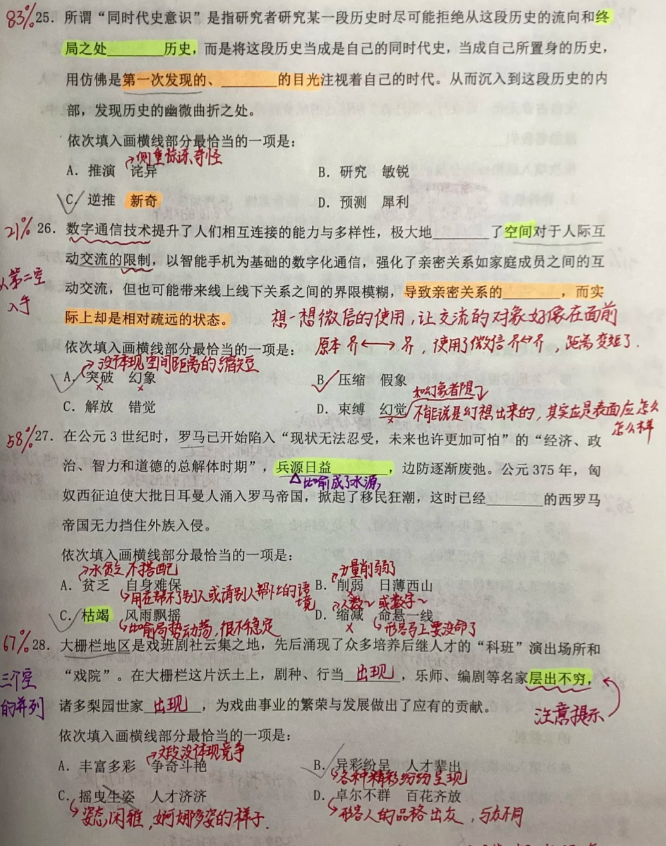 83% 25. 所谓“同时代史意识”是指研究者研究某一段历史时尽可能拒绝从这段历史的流向和终
局之处______历史，而是将这段历史当成是自己的同时代史，当成自己所置身的历史，
用仿佛是第一次发现的、______的目光注视着自己的时代。从而沉入到这段历史的内
部，发现历史的幽微曲折之处。
依次填入画横线部分最恰当的一项是：
侧重惊讶、奇怪
A. 推演 诧异 B. 研究 敏锐
C. 逆推 新奇 D. 预测 犀利
21% 26. 数字通信技术提升了人们相互连接的能力与多样性，极大地______了空间对于人际互
动交流的限制，以智能手机为基础的数字化通信，强化了亲密关系如家庭成员之间的互
从第二空入手
动交流，但也可能带来线上线下关系之间的界限模糊，导致亲密关系的______，而实
际上却是相对疏远的状态。
想一想微信的使用，让交流的对象好像在面前
依次填入画横线部分最恰当的一项是：
原本 ←→ ，使用了微信 ，距离变短了.
没体现空间距离的缩短
A. 突破 幻象 B. 压缩 假象
C. 解放 错觉 D. 束缚 幻觉
和幻象都想了
不能说是幻想出来的，其实应是表面应怎么怎么样
58% 27. 在公元 3 世纪时，罗马已开始陷入“现状无法忍受，未来也许更加可怕”的“经济、政
治、智力和道德的总解体时期”，兵源日益______，边防逐渐废弛。公元 375 年，匈
比喻成了水源
奴西征迫使大批日耳曼人涌入罗马帝国，掀起了移民狂潮，这时已经______的西罗马
帝国无力挡住外族入侵。
依次填入画横线部分最恰当的一项是：
水贫乏 不搭配 力量削弱了
A. 贫乏 自身难保 B. 削弱 日薄西山
用在帮不了别人或请别人帮忙的语境 人数~ 或数字~
C. 枯竭 风雨飘摇 D. 缩减 命悬一线
比喻局势动荡，很不稳定 形容马上要没命了
67% 28. 大栅栏地区是戏班剧社云集之地，先后涌现了众多培养后继人才的“科班”演出场所和
三个空的并列
“戏院”。在大栅栏这片沃土上，剧种、行当 出现 ，乐师、编剧等名家层出不穷，
诸多梨园世家 出现 ，为戏曲事业的繁荣与发展做出了应有的贡献。
注意提示
依次填入画横线部分最恰当的一项是：
文段没体现竞争
A. 丰富多彩 争奇斗艳 B. 异彩纷呈 人才辈出
各种精彩纷纷呈现
C. 摇曳生姿 人才济济 D. 卓尔不群 百花齐放
姿态闲雅，婀娜多姿的样子. 形容人的品格出众，与众不同